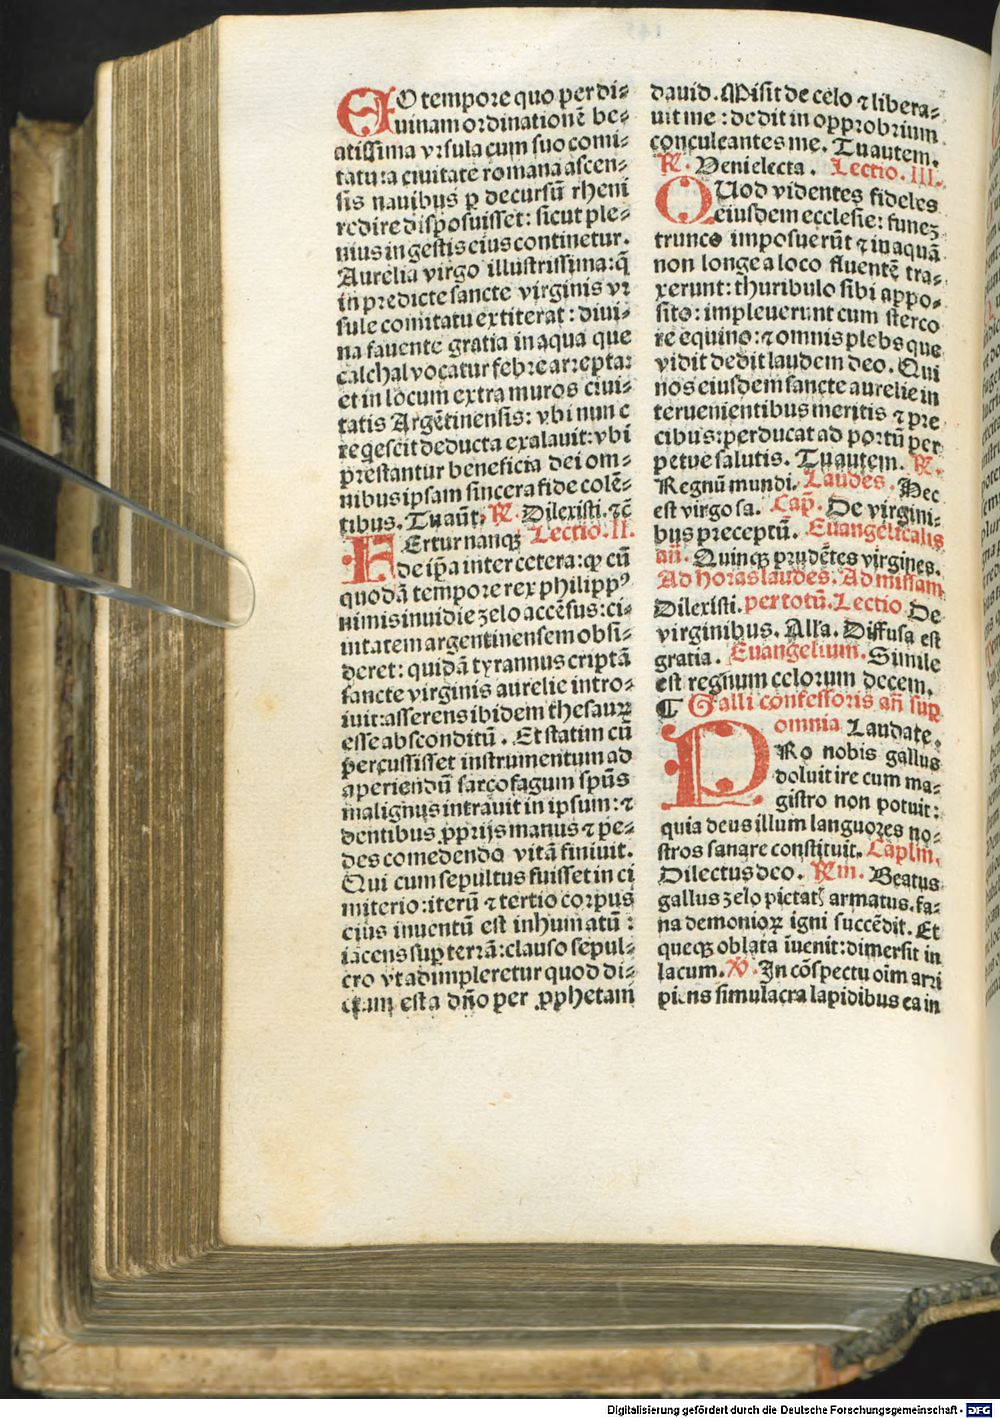 EO tempore quo per di⸗
uinam ordinationē be⸗
atissima vrsula cum suo comi⸗
tatu a ciuitate romana ascen⸗
sis nauibus ꝑ decursū rheni
redire disposuisset: sicut ple⸗
nius in gestis eius continetur.
Aurelia virgo illustrissima: q̄
in predicte sancte virginis vr
sule comitatu extiterat: diui⸗
na fauente gratia in aqua que
calchal vocatur febre arrepta:
et in locum extra muros ciui⸗
tatis Argētinensis: vbi nunc
reqescit deducta exalauit: vbi
prestantur beneficia dei om⸗
nibus ipsam sincera fide colē⸗
tibus. Tu aūt. ℟. Dilexisti. ⁊c̄
Lectio. II.
FErtur nanqꝫ
de ip̄a inter cetera: ꝙ cū
quodā tempore rex philippꝰ
nimis inuidie zelo accēsus: ci⸗
uitatem argentinensem obsi⸗
deret: quidā tyrannus criptā
sancte virginis aurelie intro⸗
iuit: asserens ibidem thesauꝝ
esse absconditū. Et statim cū
percussisset instrumentum ad
aperiendū sarcofagum spūs
malignus intrauit in ipsum: ⁊
dentibus ꝓprijs manus ⁊ pe⸗
des comedendo vitā finiuit.
Qui cum sepultus fuisset in ci
miterio: iterū ⁊ tertio corpus
eius inuentū est inhumatū:
iacens suꝑ terrā: clauso sepul⸗
cro vt adimpleretur quod di⸗
ctum est a dn̄o per ꝓphetam
dauid. Misit de celo ⁊ libera⸗
uit me: dedit in opprobrium
conculcantes me. Tu autem.
℟. Veni electa. Lectio. III.
QUod videntes fideles
eiusdem ecclesie: funeꝫ
trunco imposuerūt ⁊ in aquā
non longe a loco fluentē tra⸗
xerunt: thuribulo sibi appo⸗
sito: impleuerunt cum sterco
re equino: ⁊ omnis plebs que
vidit dedit laudem deo. Qui
nos eiusdem sancte aurelie in
teruenientibus meritis ⁊ pre
cibus: perducat ad portū per
petue salutis. Tu autem. ℟.
Regnū mundi. Laudes. Hec
est virgo sa. Cap̄. De virgini⸗
bus preceptū. Euangelicalis
an̄. Quinqꝫ prudētes virgines.
Ad horas laudes. Ad missam
Dilexisti. per totū. Lectio. De
virginibus. Alla. Diffusa est
gratia. Euangelium. Simile
est regnum celorum decem.
¶ Galli confessoris an̄ suꝑ
omnia Laudate.
PRo nobis gallus
doluit ire cum ma⸗
gistro non potuit:
quia deus illum languores no⸗
stros sanare constituit. Cap̄lm̄.
Dilectus deo. ℟m. Beatus
gallus zelo pietatꝭ armatus. fa⸗
na demonioꝝ igni succēdit. Et
queqꝫ oblata īuenit: dimersit in
lacum. ℣. In cōspectu oīm arri
piens simulacra lapidibus ea in
Digitalisierung gefördert durch die Deutsche Forschungsgemeinschaft - DFG